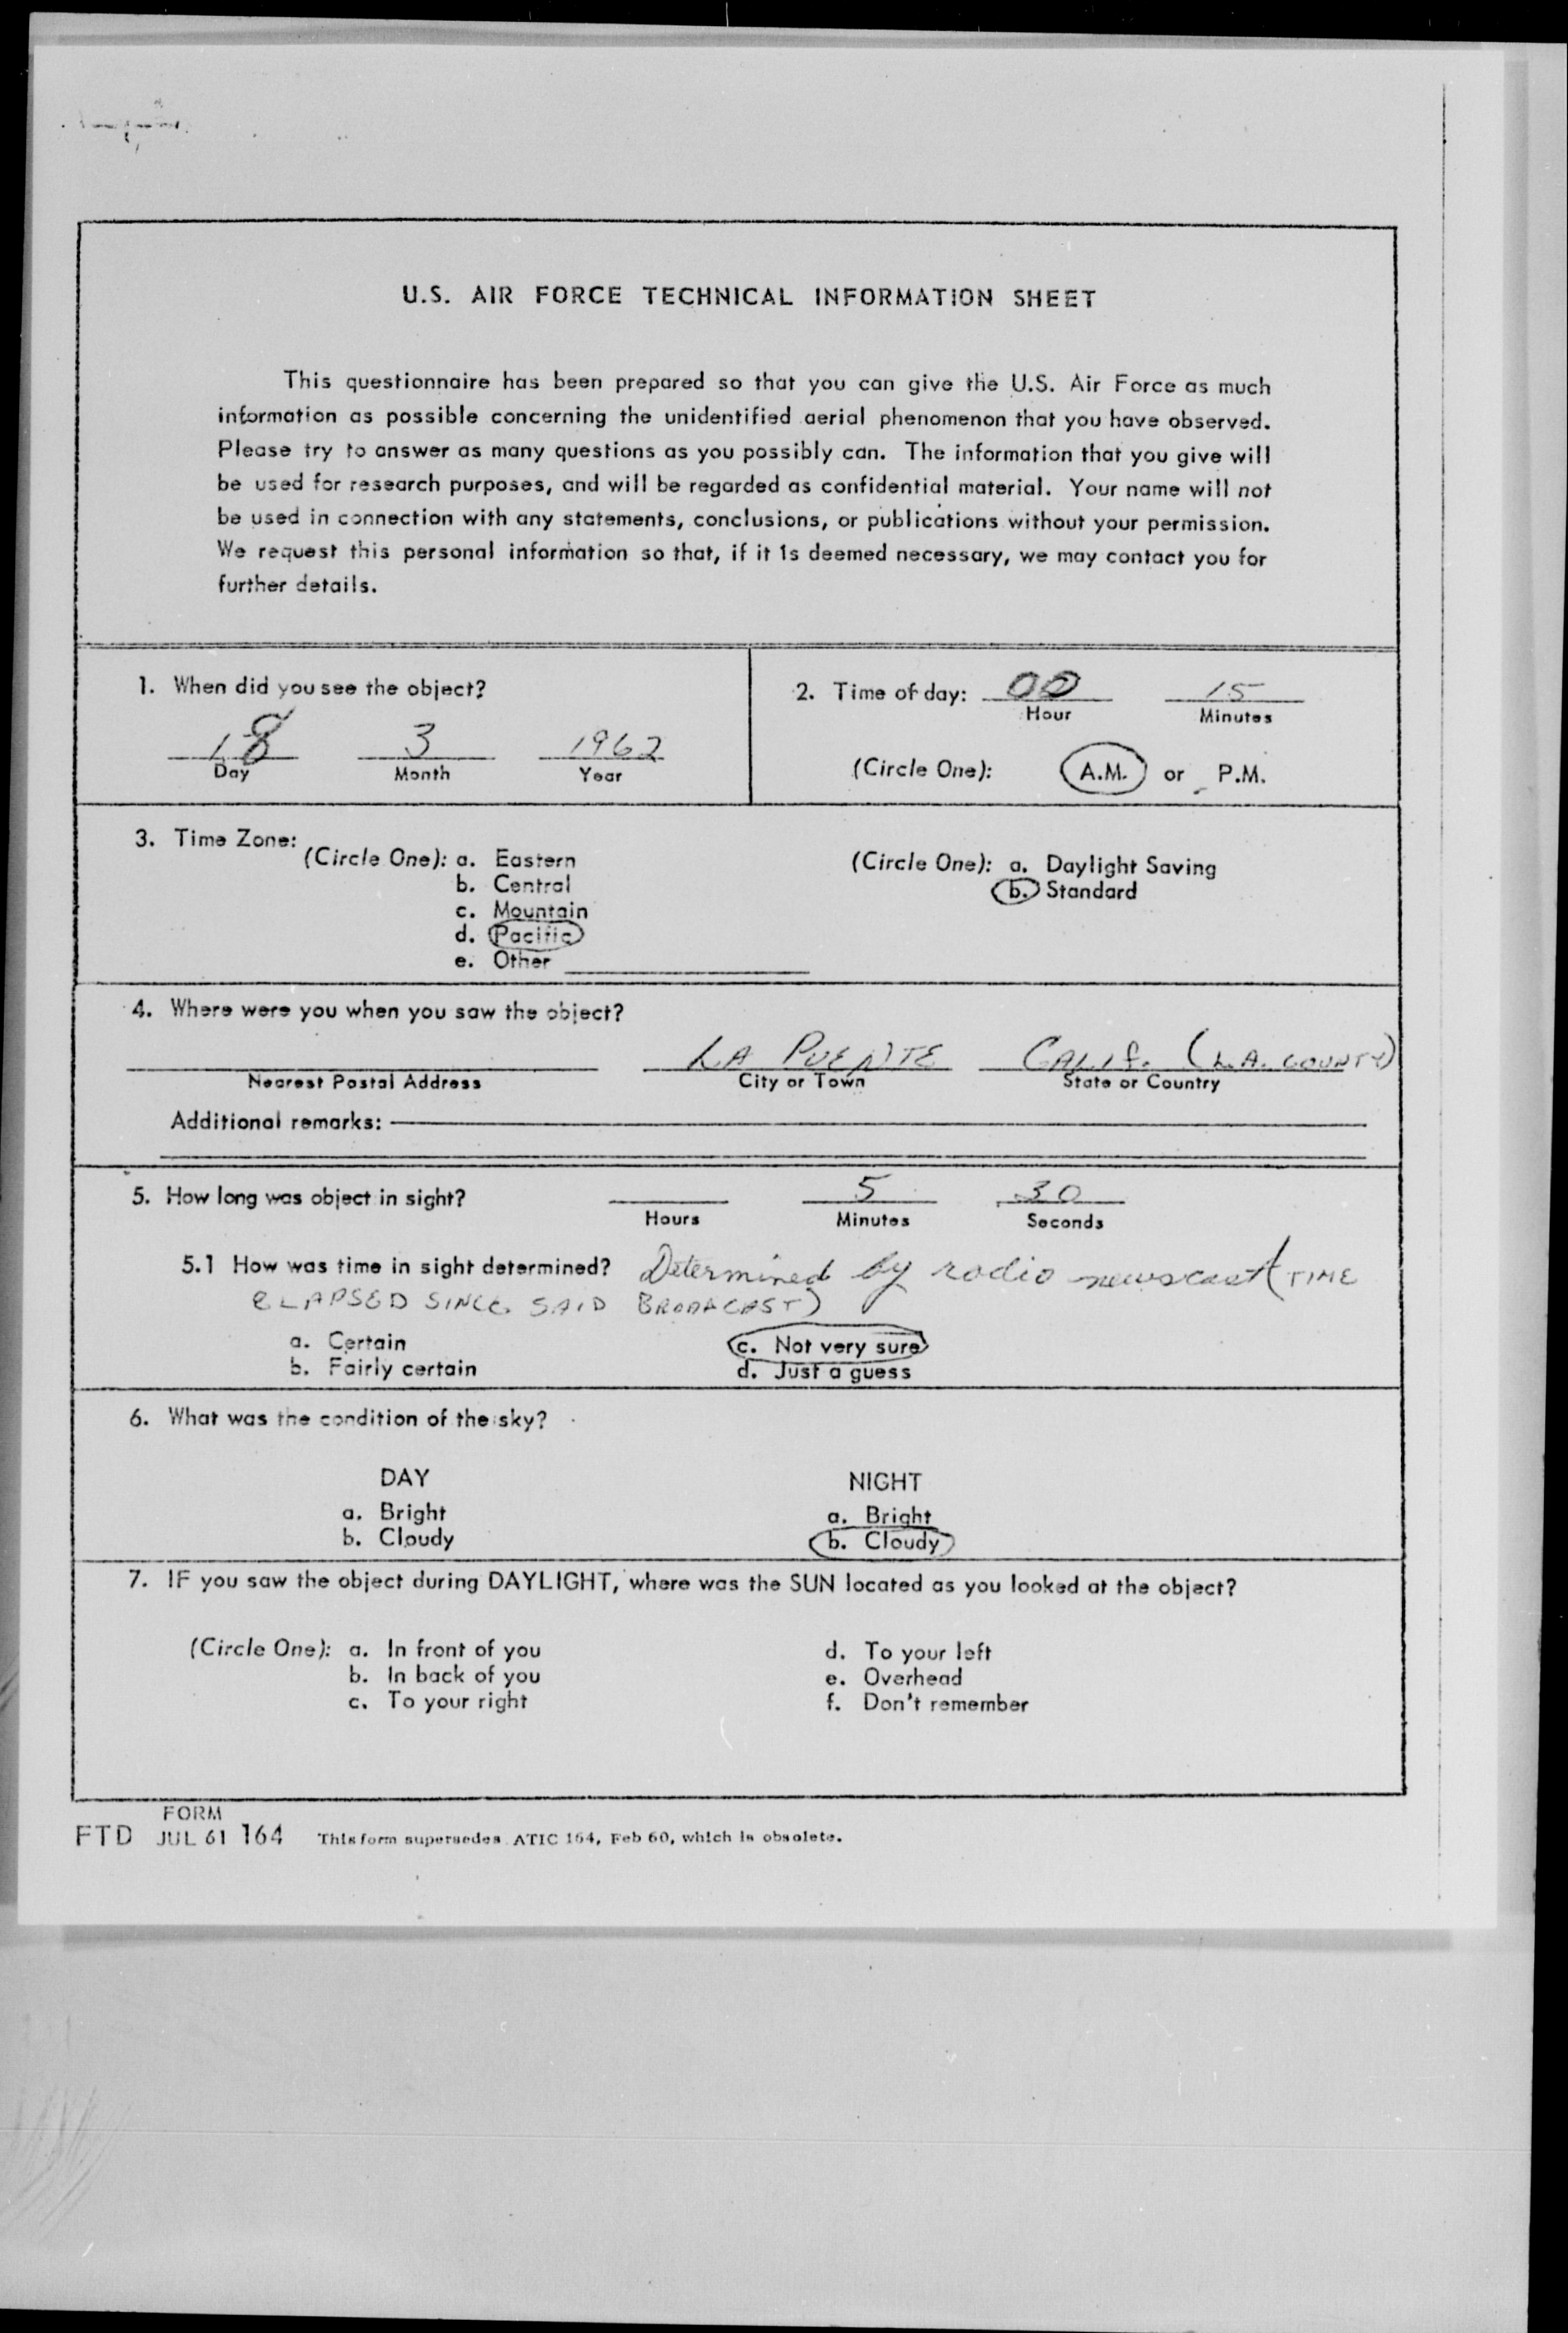 U.S. AIR FORCE TECHNICAL INFORMATION SHEET
This questionnaire has been prepared so that you can give the U.S. Air Force as much
information as possible concerning the unidentified aerial phenomenon that you have observed.
Please try to answer as many questions as you possibly can. The information that you give will
be used for research purposes, and will be regarded as confidential material. Your name will not
be used in connection with any statements, conclusions, or publications without your permission.
We request this personal information so that, if it is deemed necessary, we may contact you for
further details.
1. When did you see the object?
18 3 1962
Day Month Year
2. Time of day: 00 15
Hour Minutes
(Circle One): A.M. or P.M.
3. Time Zone:
(Circle One): a. Eastern
b. Central
c. Mountain
d. Pacific
e. Other
(Circle One): a. Daylight Saving
b. Standard
4. Where were you when you saw the object?
LA PUENTE CALIF. (L.A. COUNTY)
Nearest Postal Address City or Town State or Country
Additional remarks:
5. How long was object in sight? 5 30
Hours Minutes Seconds
5.1 How was time in sight determined? Determined by radio newscast (TIME
ELAPSED SINCE SAID BRODACAST)
a. Certain c. Not very sure
b. Fairly certain d. Just a guess
6. What was the condition of the sky?
DAY NIGHT
a. Bright a. Bright
b. Cloudy b. Cloudy
7. IF you saw the object during DAYLIGHT, where was the SUN located as you looked at the object?
(Circle One): a. In front of you d. To your left
b. In back of you e. Overhead
c. To your right f. Don't remember
FORM
FTD JUL 61 164 This form supersedes ATIC 164, Feb 60, which is obsolete.